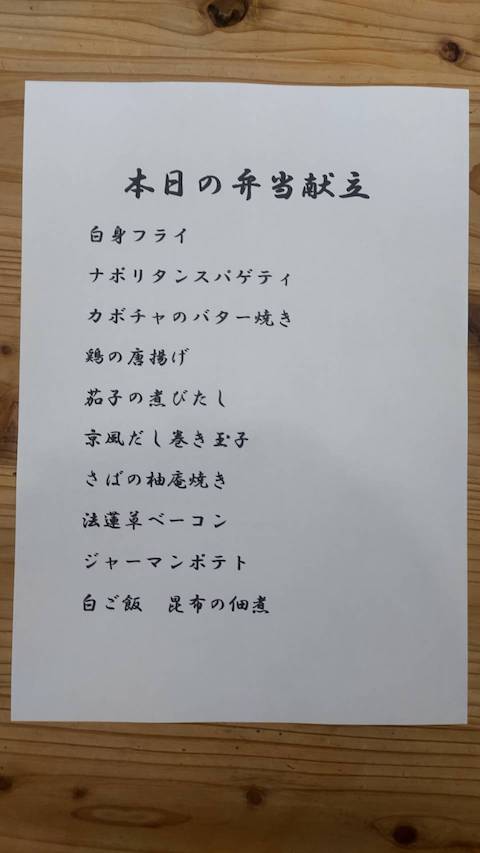 本日の弁当献立
白身フライ
ナポリタンスパゲティ
カボチャのバター焼き
鶏の唐揚げ
茄子の煮びたし
京風だし巻き玉子
さばの柚庵焼き
法蓮草ベーコン
ジャーマンポテト
白ご飯　昆布の佃煮